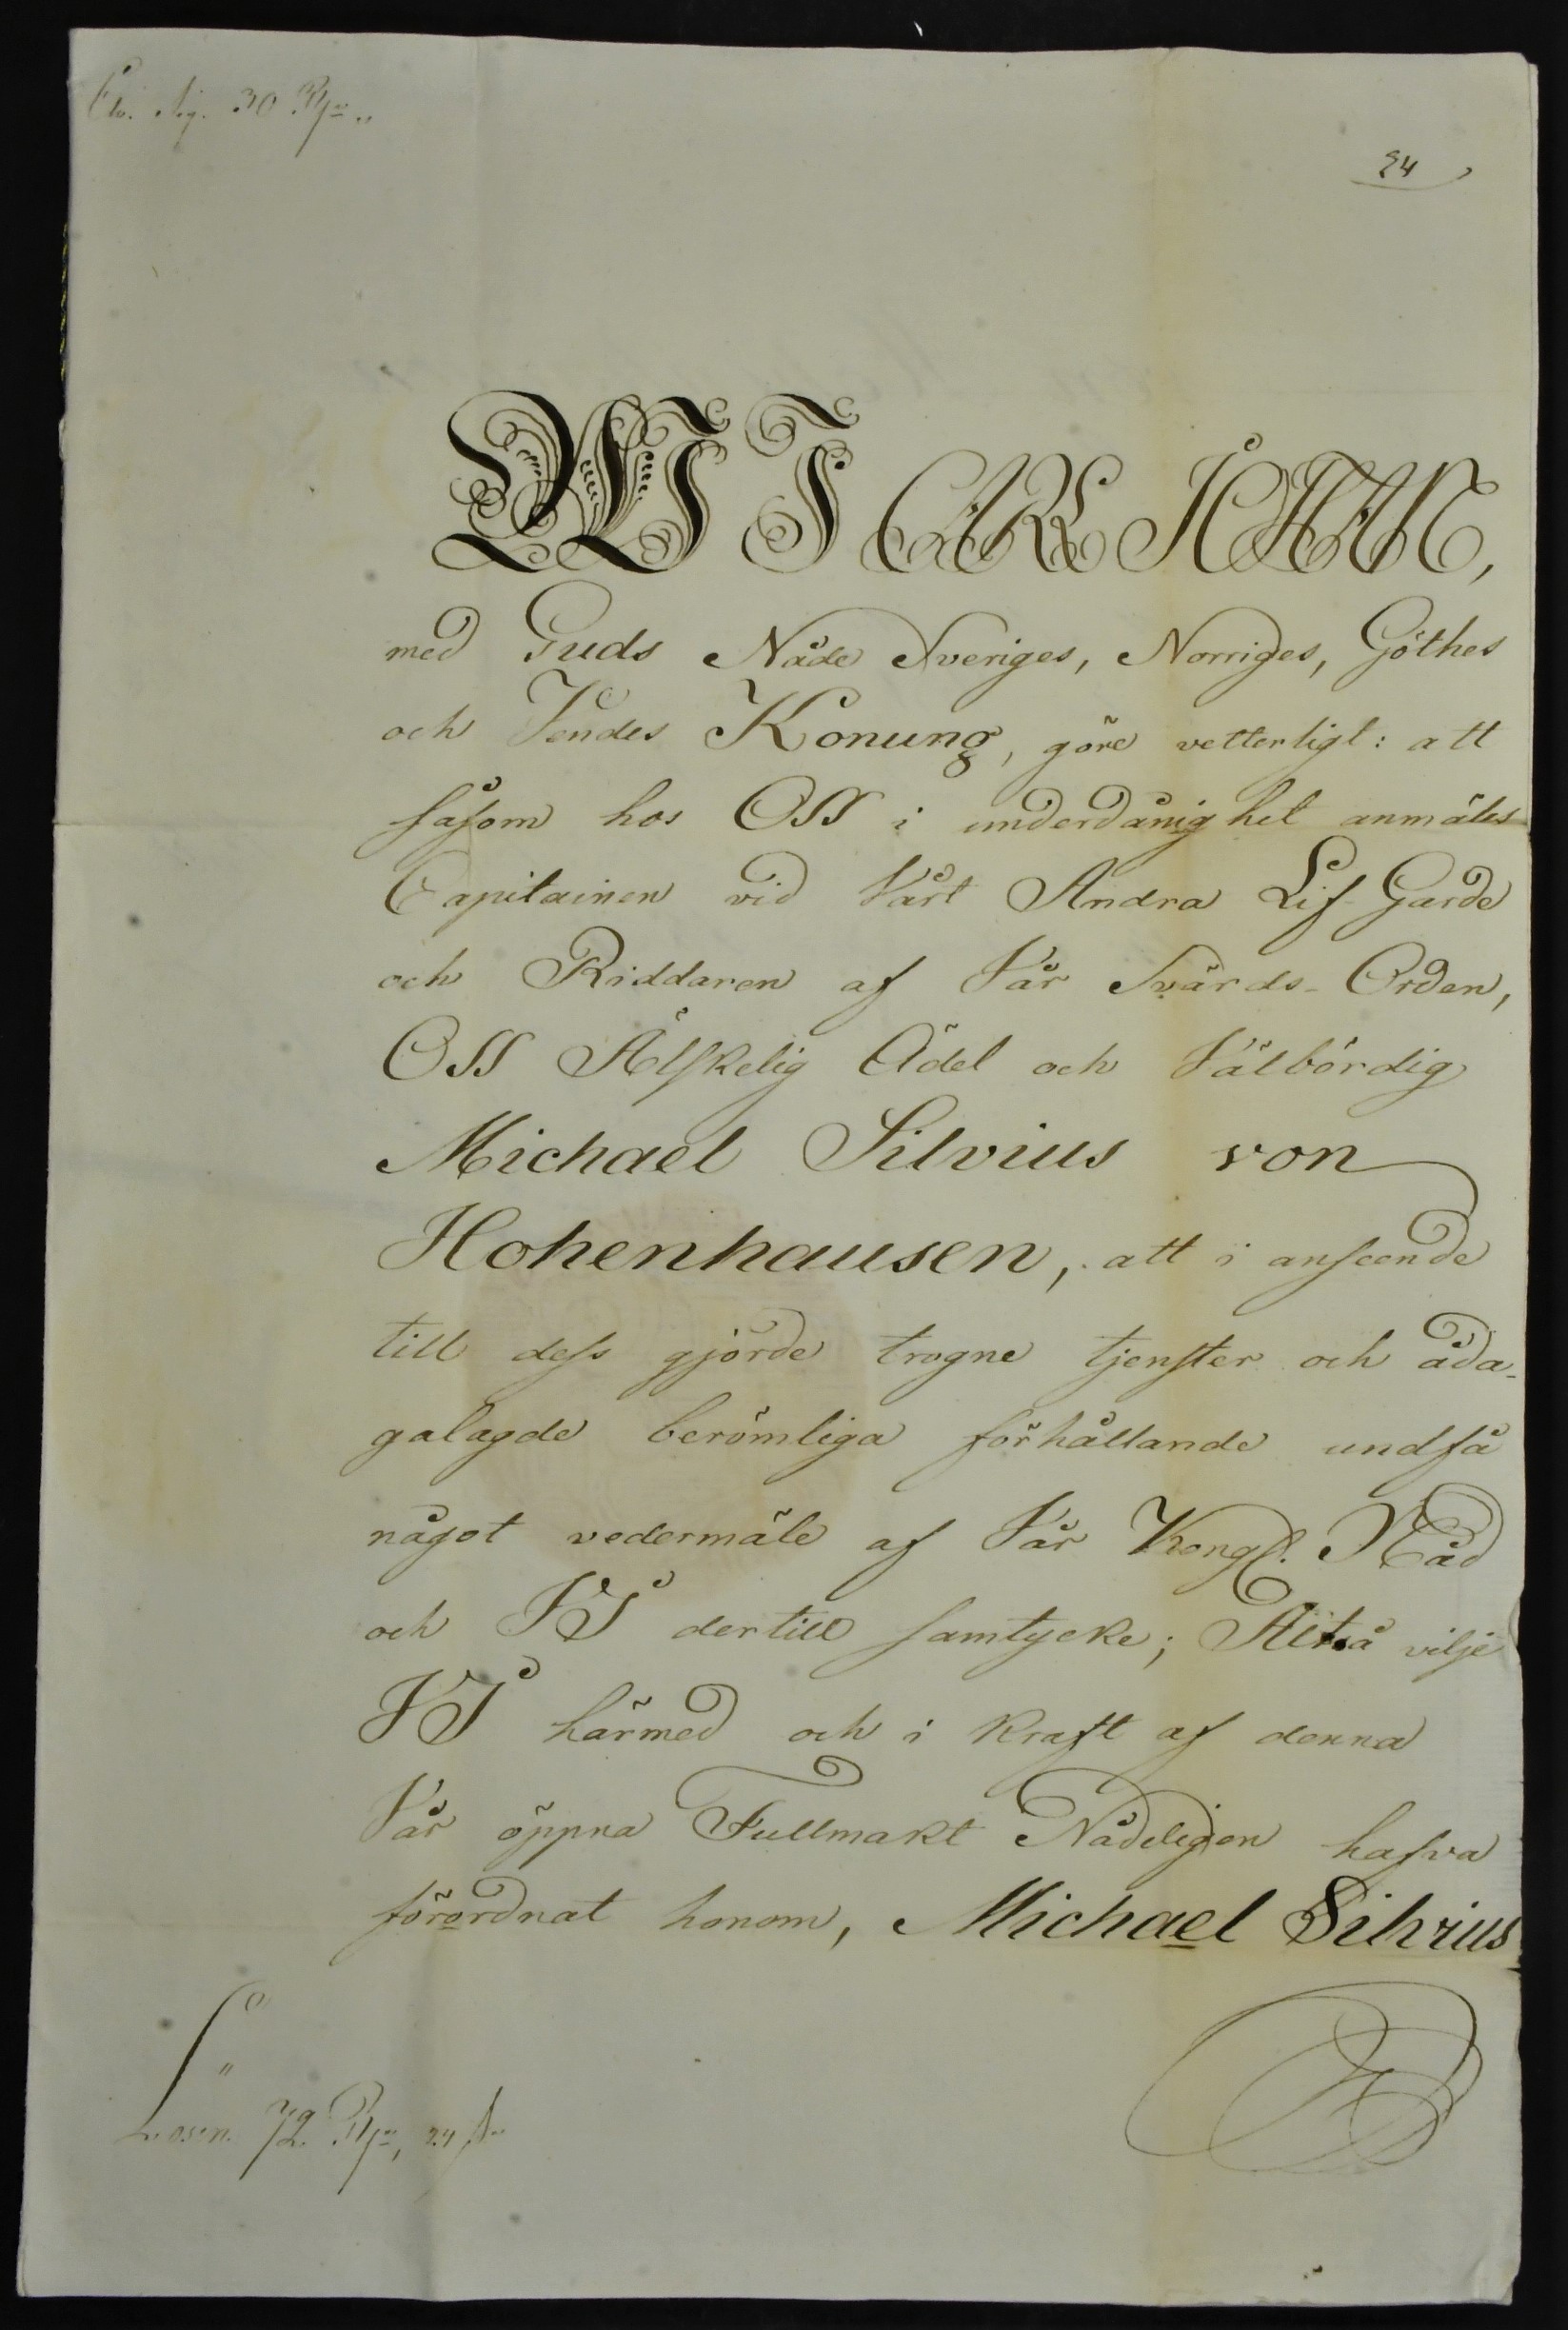 30
24
WI CARL JOHAN,
med Guds Nåde Sveriges, Norriges, Göthes
och Vendes Konung, göre vetterligt: att
såsom hos OSS i underdånighet anmäles
Capitainen vid Vårt Andra Lif-Garde
och Riddaren af Vår Svärds-Orden,
OSS Älskelig Ädel och Välbördig
Michael Silvius von
Hohenhausen, att i anseende
till dess gjorde trogne tjenster och åda-
galagde berömliga förhållande undfå
något vedermäle af Vår Kongl. Nåd
och VI dertill samtycke; Altså vilje
VI härmed och i kraft af denna
Vår öppna Fullmakt Nådeligen hafva
förordnat honom, Michael Silvius
Lösen. 72 24